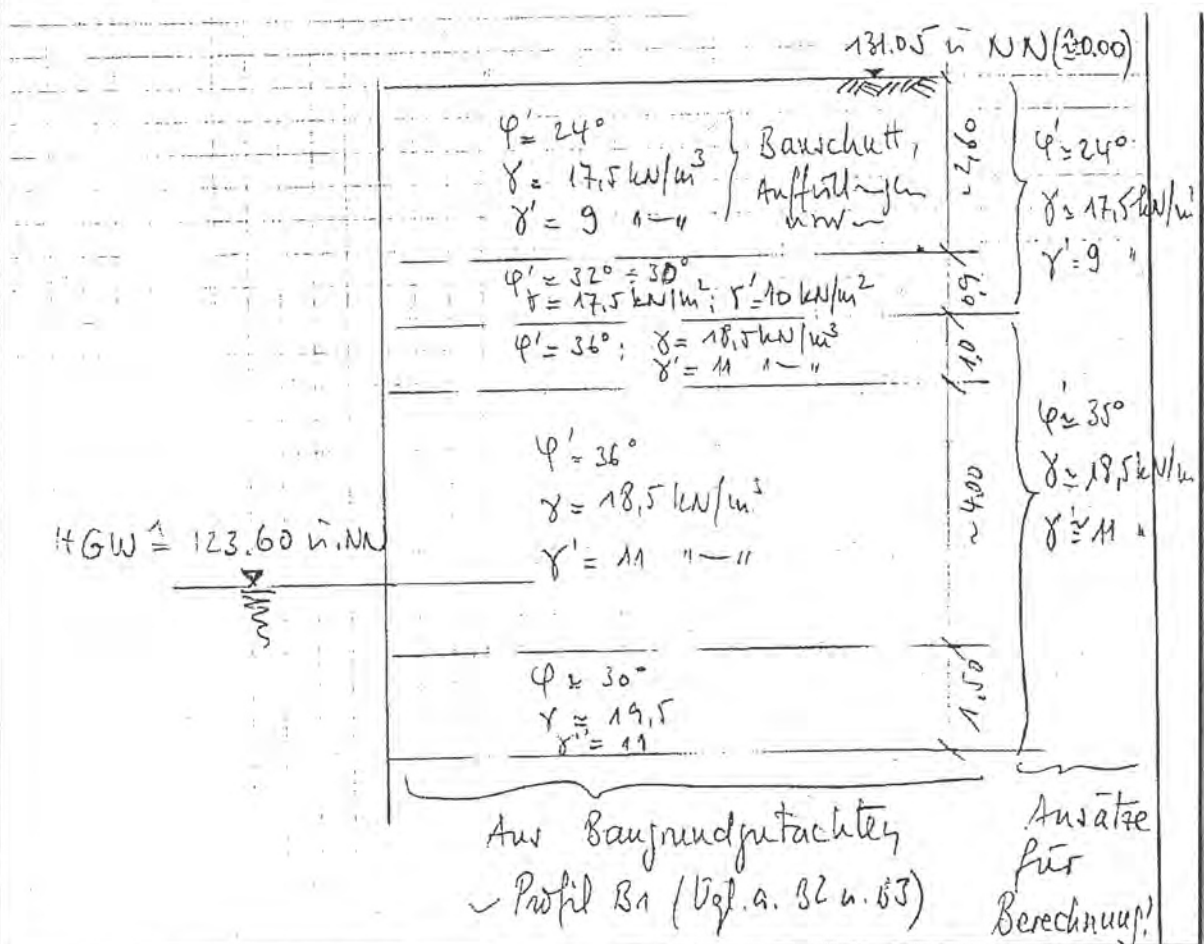 131.05 ü NN (≙±0.00)
φ' = 24°
γ = 17,5 kN/m³
γ' = 9 "—"
Bauschutt,
Auffüllungen
usw.
~2,60
φ' ≃ 24°
γ ≃ 17,5 kN/m³
γ' = 9 "
φ' ≃ 32° ÷ 30°
γ = 17,5 kN/m²; γ' = 10 kN/m²
0,9
φ' = 36°; γ = 18,5 kN/m³
γ' = 11 "—"
1,0
φ' = 36°
γ = 18,5 kN/m³
γ' = 11 "—"
~4,00
φ' ≃ 35°
γ ≃ 18,5 kN/m
γ' ≃ 11 "
HGW ≙ 123.60 ü.NN
φ ≈ 30°
γ ≅ 19,5
γ' = 11
1,50
Aus Baugrundgutachten
~ Profil B1 (Vgl. a. B2 u. B3)
Ansätze
für
Berechnung!